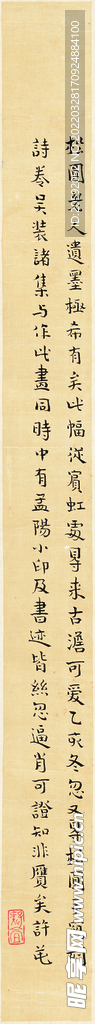 松圓老人遺墨極希有矣此幅從賓虹處尋來古澹可爱乙亥冬忽又得松圓
詩卷吴装諸集与作此畫同時中有孟陽小印及書迹皆絲忽逼肖可證知非贋矣許芚
昵享网 www.nipic.cn